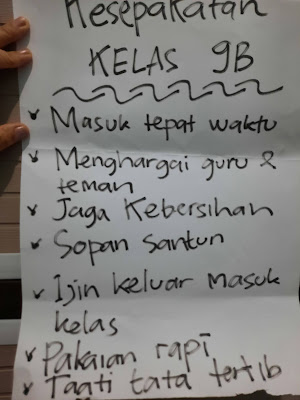 Kesepakatan
KELAS 9B
Masuk tepat waktu
Menghargai guru &
teman
Jaga Kebersihan
Sopan santun
Ijin keluar masuk
kelas
Pakaian rapi
Taati tata tertib